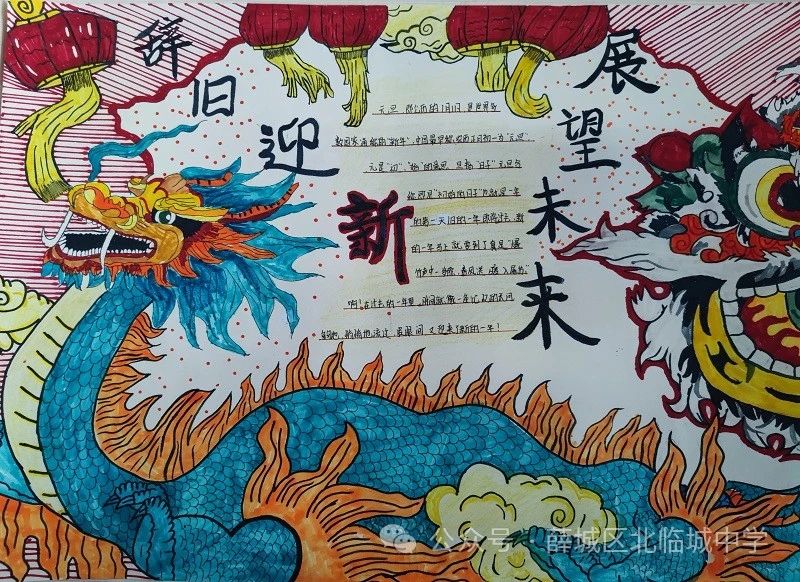 辞旧迎新
展望未来
元旦 即公历的1月1日,是世界多
数国家通称的“新年”,中国最早称农历正月初一为“元旦”,
元是“初”、“始”的意思,旦指“日子”元旦合
称即是“初始的日子”也就是一年
的第一天旧的一年即将过去,新
的一年马上就要到了
竹声中一岁除,春风送暖入屠苏”
啊!在过去的一年里,时间就像一座
的一年!
公众号 · 薛城区北临城中学